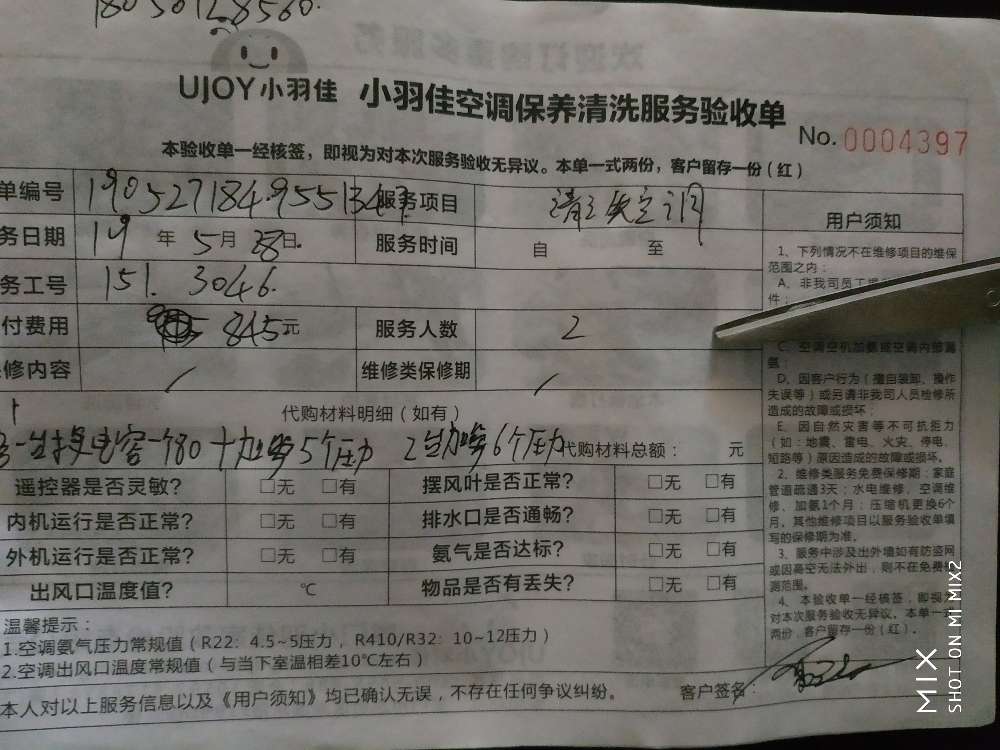 18050128560.
UJOY小羽佳 小羽佳空调保养清洗服务验收单
No. 0004397
本验收单一经核签，即视为对本次服务验收无异议。本单一式两份，客户留存一份（红）
单编号 服务项目 清洗空调
务日期 19 年 5 月 28 日 服务时间 自 至
务工号 151. 3046.
付费用 845元 服务人数 2
修内容 / 维修类保修期 /
代购材料明细（如有）
一台换电容一个80+加 5个压力 2台加 6个压力 代购材料总额： 元
遥控器是否灵敏? □无 □有 摆风叶是否正常? □无 □有
内机运行是否正常? □无 □有 排水口是否通畅? □无 □有
外机运行是否正常? □无 □有 氨气是否达标? □无 □有
出风口温度值? ℃ 物品是否有丢失? □无 □有
温馨提示：
1.空调氨气压力常规值（R22：4.5~5压力，R410/R32：10~12压力）
2.空调出风口温度常规值（与当下室温相差10℃左右）
本人对以上服务信息以及《用户须知》均已确认无误，不存在任何争议纠纷。 客户签名：
用户须知
1、下列情况不在维修项目的维保
范围之内：
A、非我司员工
件；
C、空调空机加氨或空调内部漏
氨；
D、因客户行为（擅自装卸、操作
失误等）或另请非我司人员检修所
造成的故障或损坏；
E、因自然灾害等不可抗拒力
（如：地震、雷电、火灾、停电、
短路等）原因造成的故障或损坏。
2、维修类服务免费保修期：家庭
管道疏通3天；水电维修、空调维
修、加氨1个月；压缩机更换6个
月，其他维修项目以服务验收单填
写的保修期为准。
3、服务中涉及出外墙如有防盗网
或因高空无法外出，则不在免费
测范围。
4、本验收单一经核签，即视
对本次服务验收无异议。本单一
两份，客户留存一份（红）。
MIX
SHOT ON MI MIX2